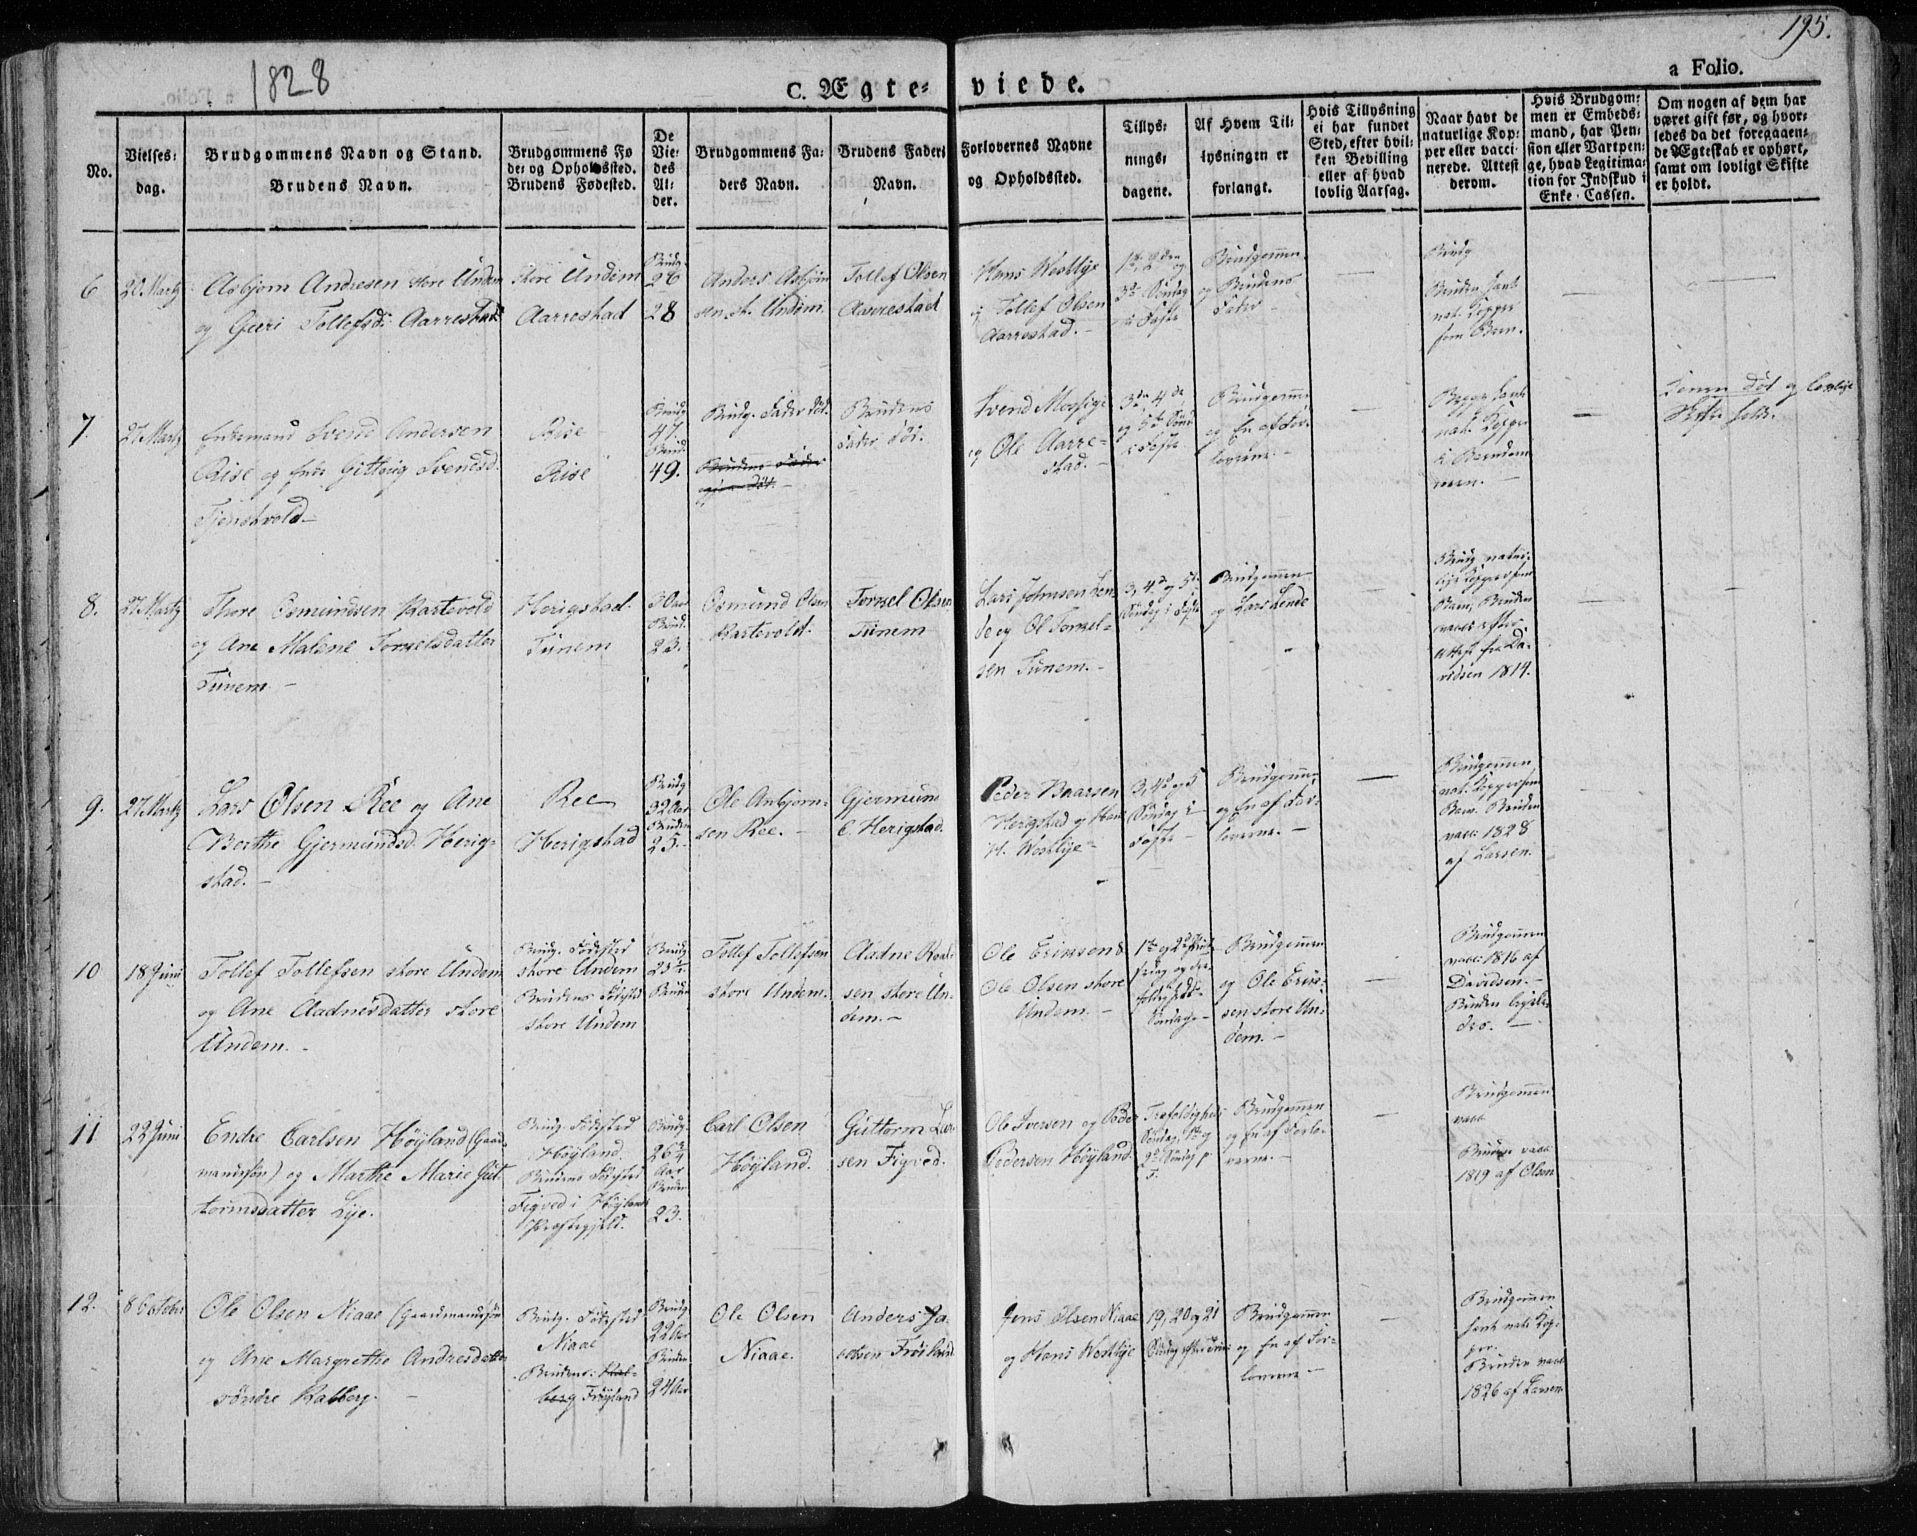 195.
1828
C. Ægte-viede.
a Folio.
No.
Vielses-
dag.
Brudgommens Navn og Stand.
Brudens Navn.
Brudgommens Fø
de- og Opholdssted.
Brudens Fødested.
De
Vie-
des
Al-
der.
Brudgommens Fa-
ders Navn.
Brudens Faders
Navn.
Forlovernes Navne
og Opholdssted.
Tillys-
nings-
dagene.
Af Hvem Til-
lysningen er
forlangt.
Hvis Tillysning
ei har fundet
Sted, efter hvil-
ken Bevilling
eller af hvad
lovlig Aarsag.
Naar havt de
naturlige Kop-
per eller vacci-
nerede. Attest
derom.
Hvis Brudgom-
men er Embeds-
mand, har Pen-
sion eller Vartpen-
ge, hvad Legitima-
tion for Indskud i
Enke-Cassen.
Om nogen af dem har
været gift før, og hvor-
ledes da det foregaaen-
de Ægteskab er ophørt,
samt om lovligt Skifte
er holdt.
6
20 Martz
Asbjørn Andresen store Undem
og Geeri Tollefsd: Aarrestad
store Undem
Aarrestad
Brudg.
26
28
Anders Asbjøn
sen st. Undem.
Tollef Olsen
Aarrestad
Hans Westlye
og Tollef Olsen
Aarrestad.-
1te, 2den og
3te Søndag
i Faste
Brudgommen
og Brudens
Fader -
Brudg
Bruden havt
nat. Kopper
som Barn.
7.
27 Martz
Enkemand Svend Andersen
Rise og Enke Gitlaug Svendsd.
Tjenstvold-
Rise
Rise
Brudg
47.
Brud.
49.
Brudg. Fader død.
Brudens Fader
død.
Brudens
Fader død.
Svend Mossige
og Ole Aarre-
stad.-
3de, 4de
og 5te Sønd
i Faste
Brudgommen
og En af For-
loverne.-
Begge havt
nat. Kopper
i Barndom-
men.-
død og lovlige
Skifte holdt.
8.
27 Martz
Thore Osmundsen Bartevold
og Ane Malene Torkelsdatter
Tunem.-
Herigstad.
Tunem
30 aar
Brud.
23.
Osmund Olsen
Bartevold.
Torkel Olsen
Tunem
Lars Johnsen Len
de og Ol Torkel-
sen Tunem.-
3, 4d og 5te
Søndag i Faste
Brudgommen
og Lars Lende
Brudg. natur-
lige Kopper som
Barn, Bruden
vacc. efter
Attest fra Da-
vidsen 1814.
9.
27 Martz
Lars Olsen Ree og Ane
Berthe Gjermundsd. Herig-
stad.-
Ree
Herigstad
Brudg
32 Aar
Bruden
25.
Ole Asbjørn-
sen Ree.-
Gjermund
O. Herigstad
Peder Baarsen
Herigstad og Hans
H. Westlye-
3, 4d og 5
Søndag i
Faste-
Brudgommen
og En af For-
loverne.-
Brudgommen
nat. Kopper som
Barn. Bruden
vacc. 1828
af Larsen.
10
18 Juni
Tollef Tollefsen store Undem
og Ane Aadnesdatter store
Undem.-
Brudg. Fødested
store Undem
Brudens Fødested
store Undem
Brudg
25
Bruden
Tollef Tollefsen
store Undem.-
Aadne Roald
sen store Un-
dem.-
Ole Ericsen &
Ole Olsen store
Undem.-
1te og 2d Pint-
sedag og Tre-
foldigheds-
Søndag-
Brudgommen
og Ole Eric-
sen store Un-
dem.-
Brudgommen
vacc. 1816 af
Davidsen.-
Bruden ligele-
des.-
11
22 Juni
Endre Carlsen Høyland (Gaard
mandssøn) og Marthe Marie Gut
tormsdatter Lye.
Brudg. Fødested
Høyland.
Brudens Fødested
Figved i Høylands
Præstegjeld.
Brudg.
26¼
Aar
Bruden
23.
Carl Olsen
Høyland.
Guttorm Lar-
sen Figved.
Ole Iversen og Peder
Pedersen Høyland.
Trefoldigheds
Søndag, 1te og
2de Søndag p.
T.
Brudgommen
og En af Forlo-
verne.-
Brudgommen
vacc.
Bruden vacc.
1819 af Olsen
12.
8 October
Ole Olsen Niaae (Gaardmandssøn
og Ane Margrethe Andresdatter
søndre Kalberg.-
Brudg. Fødested
Niaae
Brudens. Kal-
berg Frøyland
Brudg.
22 Aar
Bruden
24 Aar
Ole Olsen
Niaae.
Anders Ja-
cobsen Frøiland
Jens Olsen Niaae
og Hans Westlye
19, 20 og 21
Søndag efter Trinit.
Brudgommen
og En af For-
loverne-
Brudgommen
havt nat. Kop-
per.
Bruden vacc.
1826 af Larsen